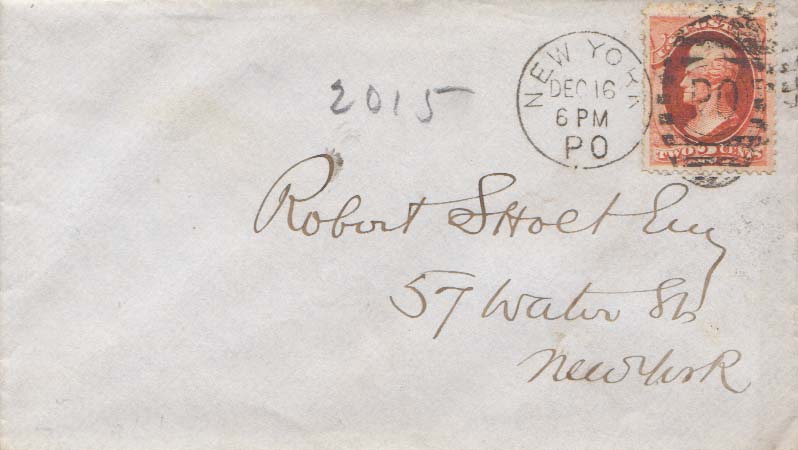 NEW YORK
DEC 16
6 PM
PO
PO
TWO 2 CENTS
2015
Robert S Holt Esq
57 Water St
New York